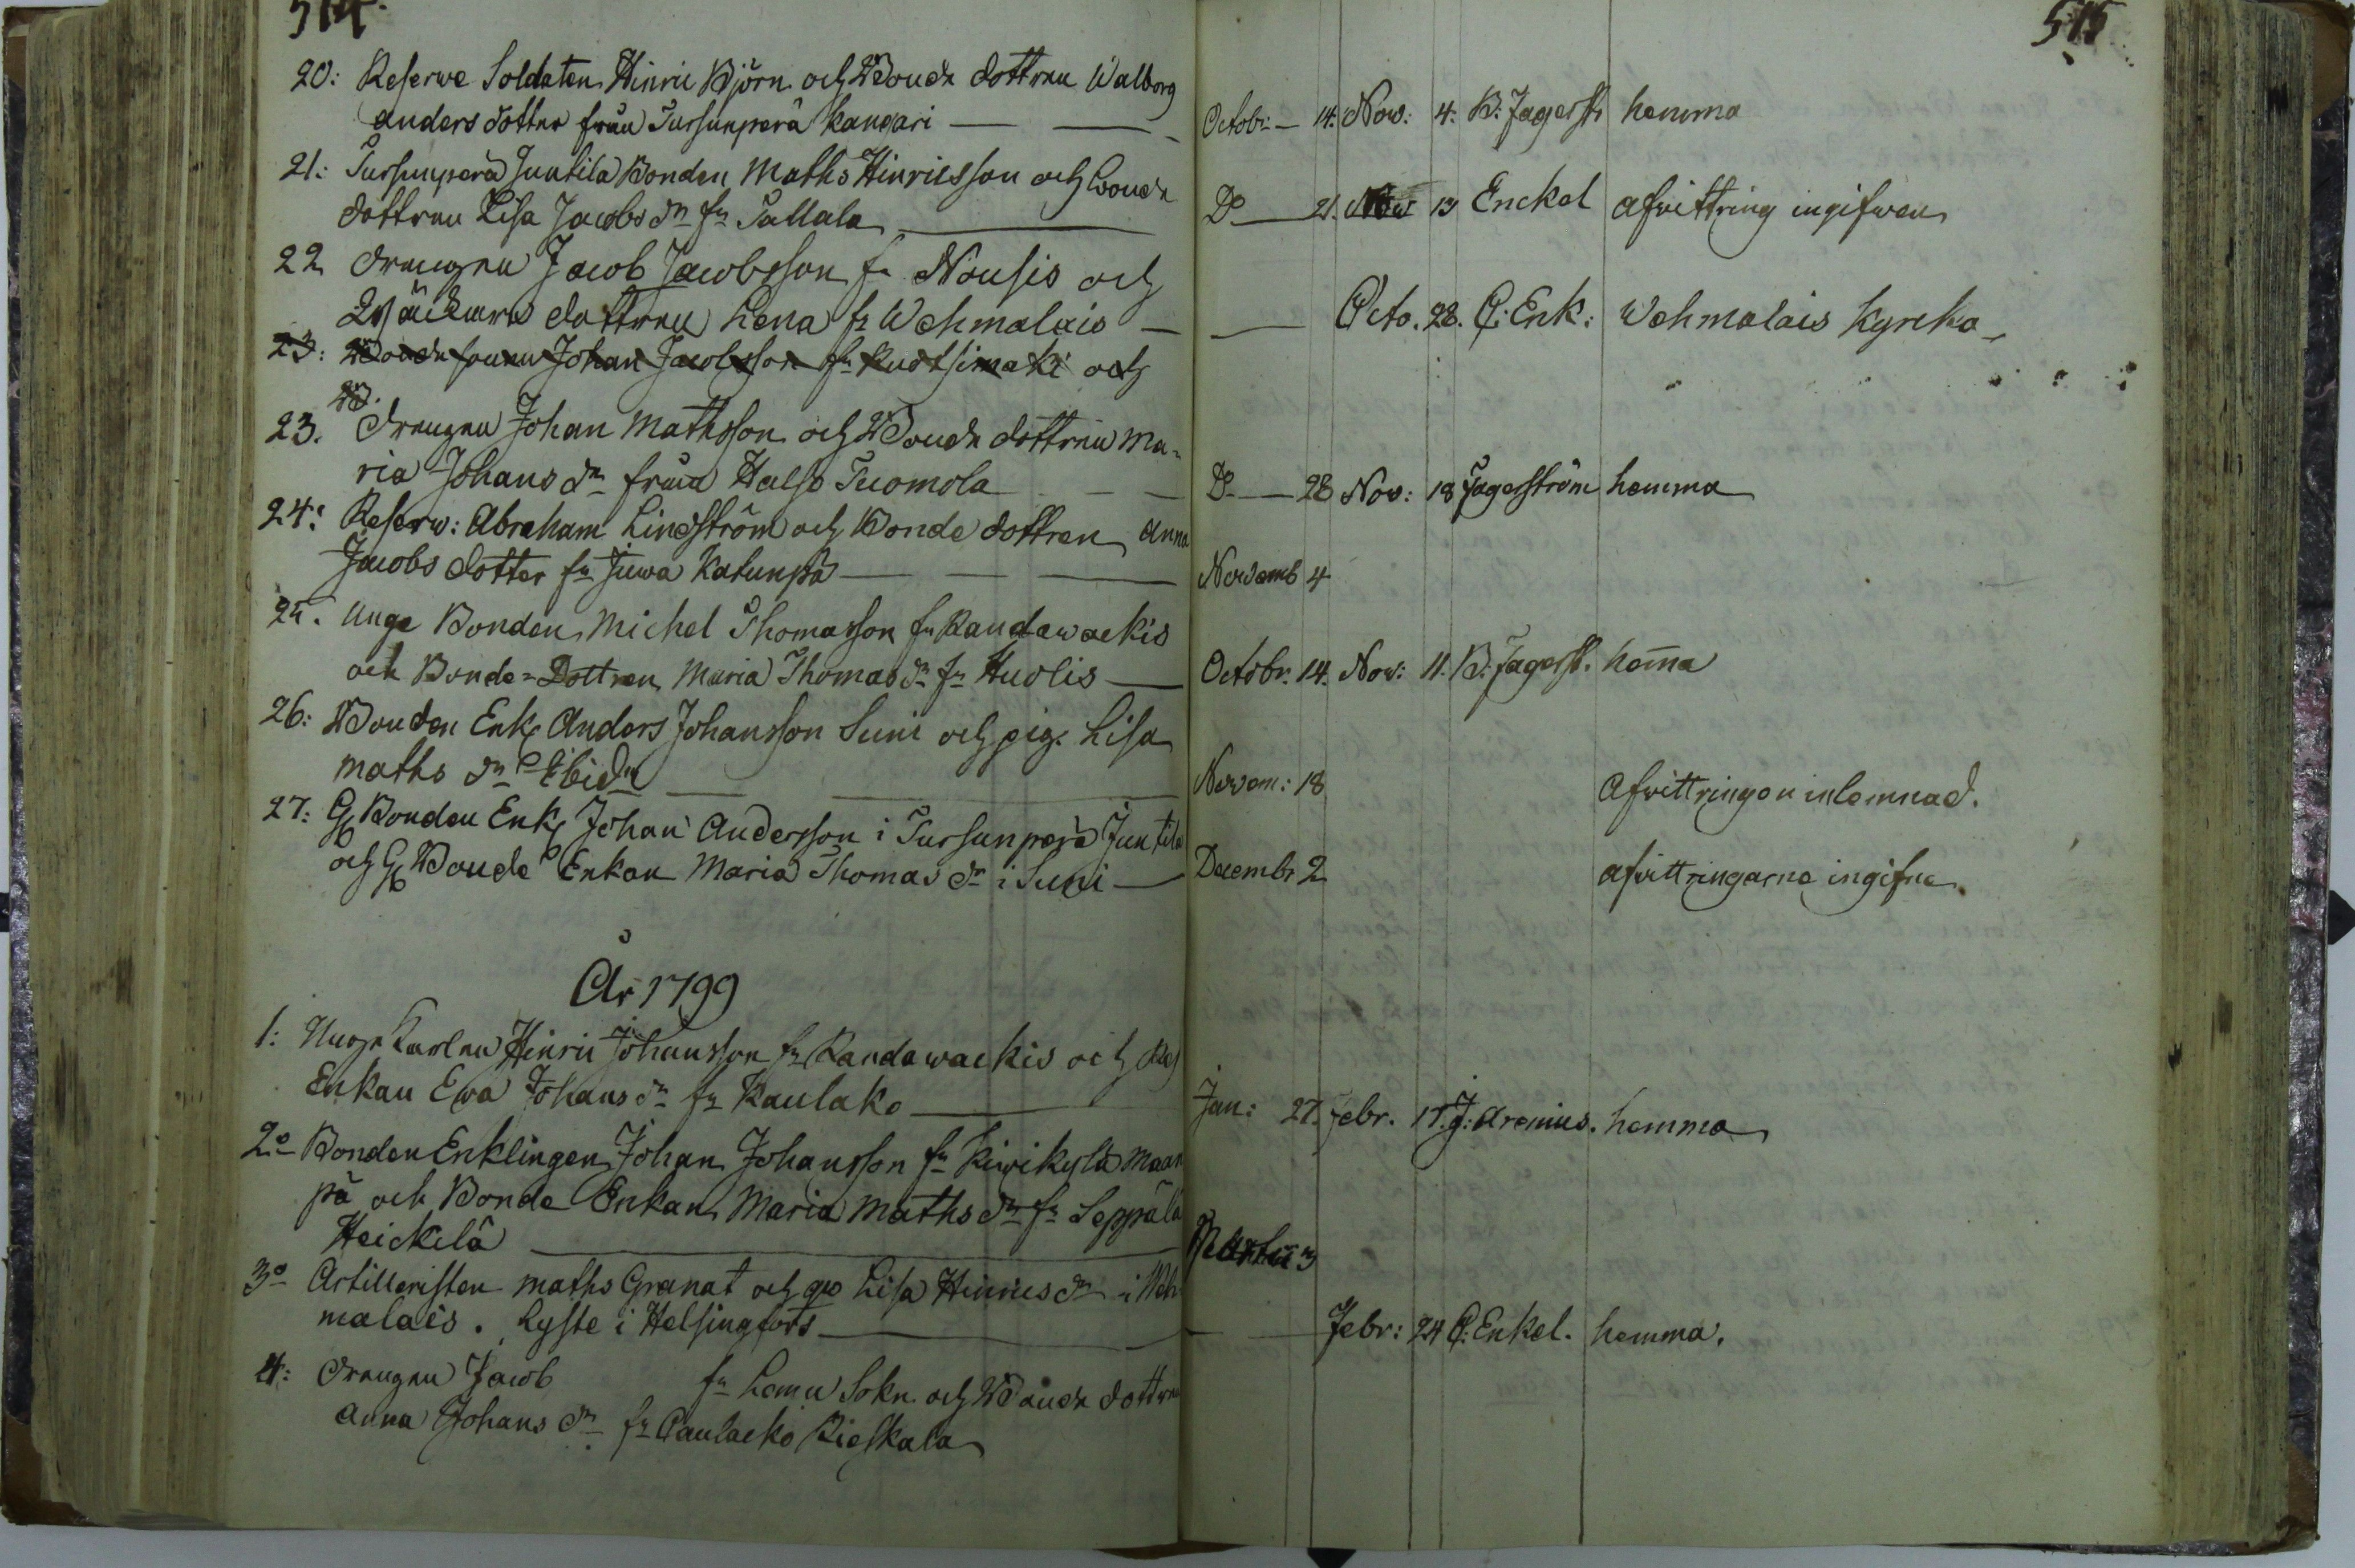 514.
20: Reserwe Soldaten Hinric Björn och Bonde dottren Walborg
anders dotter från Tursunperä kangari
21: Tursunperä Juntila Bonden Maths Hinricsson och Bonde
dottren Lisa Jacobs dr fr Tallala
22 drengen Jacob Jacobsson fr Nousis och
dottren Lena fr Wehmalais
23: Bonde sonen Johan Jacobsson fr Ruotsimaki och
23. B. drengen Johan Mathsson och Bonde dottren Ma=
ria Johans dr från Halso Tuomola
24: Reserw: Abraham Lindström och Bonde dottren Anna
Jacobs dotter fr Juwa Katunpä
25. Unge Bonden Michel Thomasson fr Randawackis
och Bonde=Dottren Maria Thomas dr fr Huolis
26: Bonden Enk Anders Johansson Suni och pig. Lisa
Maths dr Ibidm
27: G Bonden Enk Johan Andersson i Tursunperä Juntila
och G Bonde Enkan Maria Thomas dr i Suni
År 1799
1: Unge Karlen Hinric Johansson fr Randawackis och Res
Enkan Ewa Johans dr fr Kaulako
2o Bonden Enklingen Johan Johansson fr Kiwikylä Maan
pä och Bonde Enkan Maria Maths dr fr Seppälä
Heickelä
3o Artilleristen Maths Granat och qw Lisa Hinrics dr i Weh
malais. Lyste i Helsingfors
4: drengen Jacob fr Lemu Sokn och Bonde dottren
Anna Johans dr fr Caulacko Rieskala
515
Octobr: 14. Nov: 4. B. Jagerst: hemma
Do 21. Nov 13 Enckel afvittring ingifwen
Octo. 28. C: Enk: Wehmalais Kyrcka
Do 28 Nov: 18 Jagerström hemma
Novemb 4
Octobr. 14. Nov: 11. B. Jagerst. hem̄a
Novem: 18 Afvittringen inlemnad.
Decembr 2 afvittringarne ingifne
Jan: 27. Febr. 17. J: Arenius. hemma
Martii 3
Febr: 24 C: Enkel. hemma.